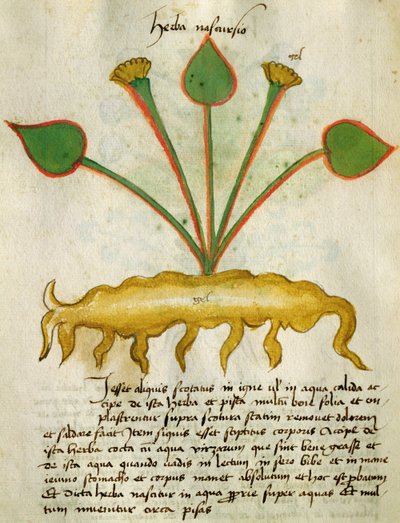 herba nascursio
gel
gel
Iesset aliquis scotatus in igne ul' in aqua calida ac
cipe de ista herba et pista multu bñ folia et en
plastrentur supra scotura statim removet dolorem
et saldare facit Item siquis esset stiptius corporis Acipe de
ista herba cocta cu aqua virzarum que sint bene grasse et
de ista aqua quando vadis in lectum in sero bibe et in mane
ieiuno stomacho et corpus manet absolutum et hoc est
Et dicta herba nascitur in aqua super aquas Et mul
tum invenitur circa pisas